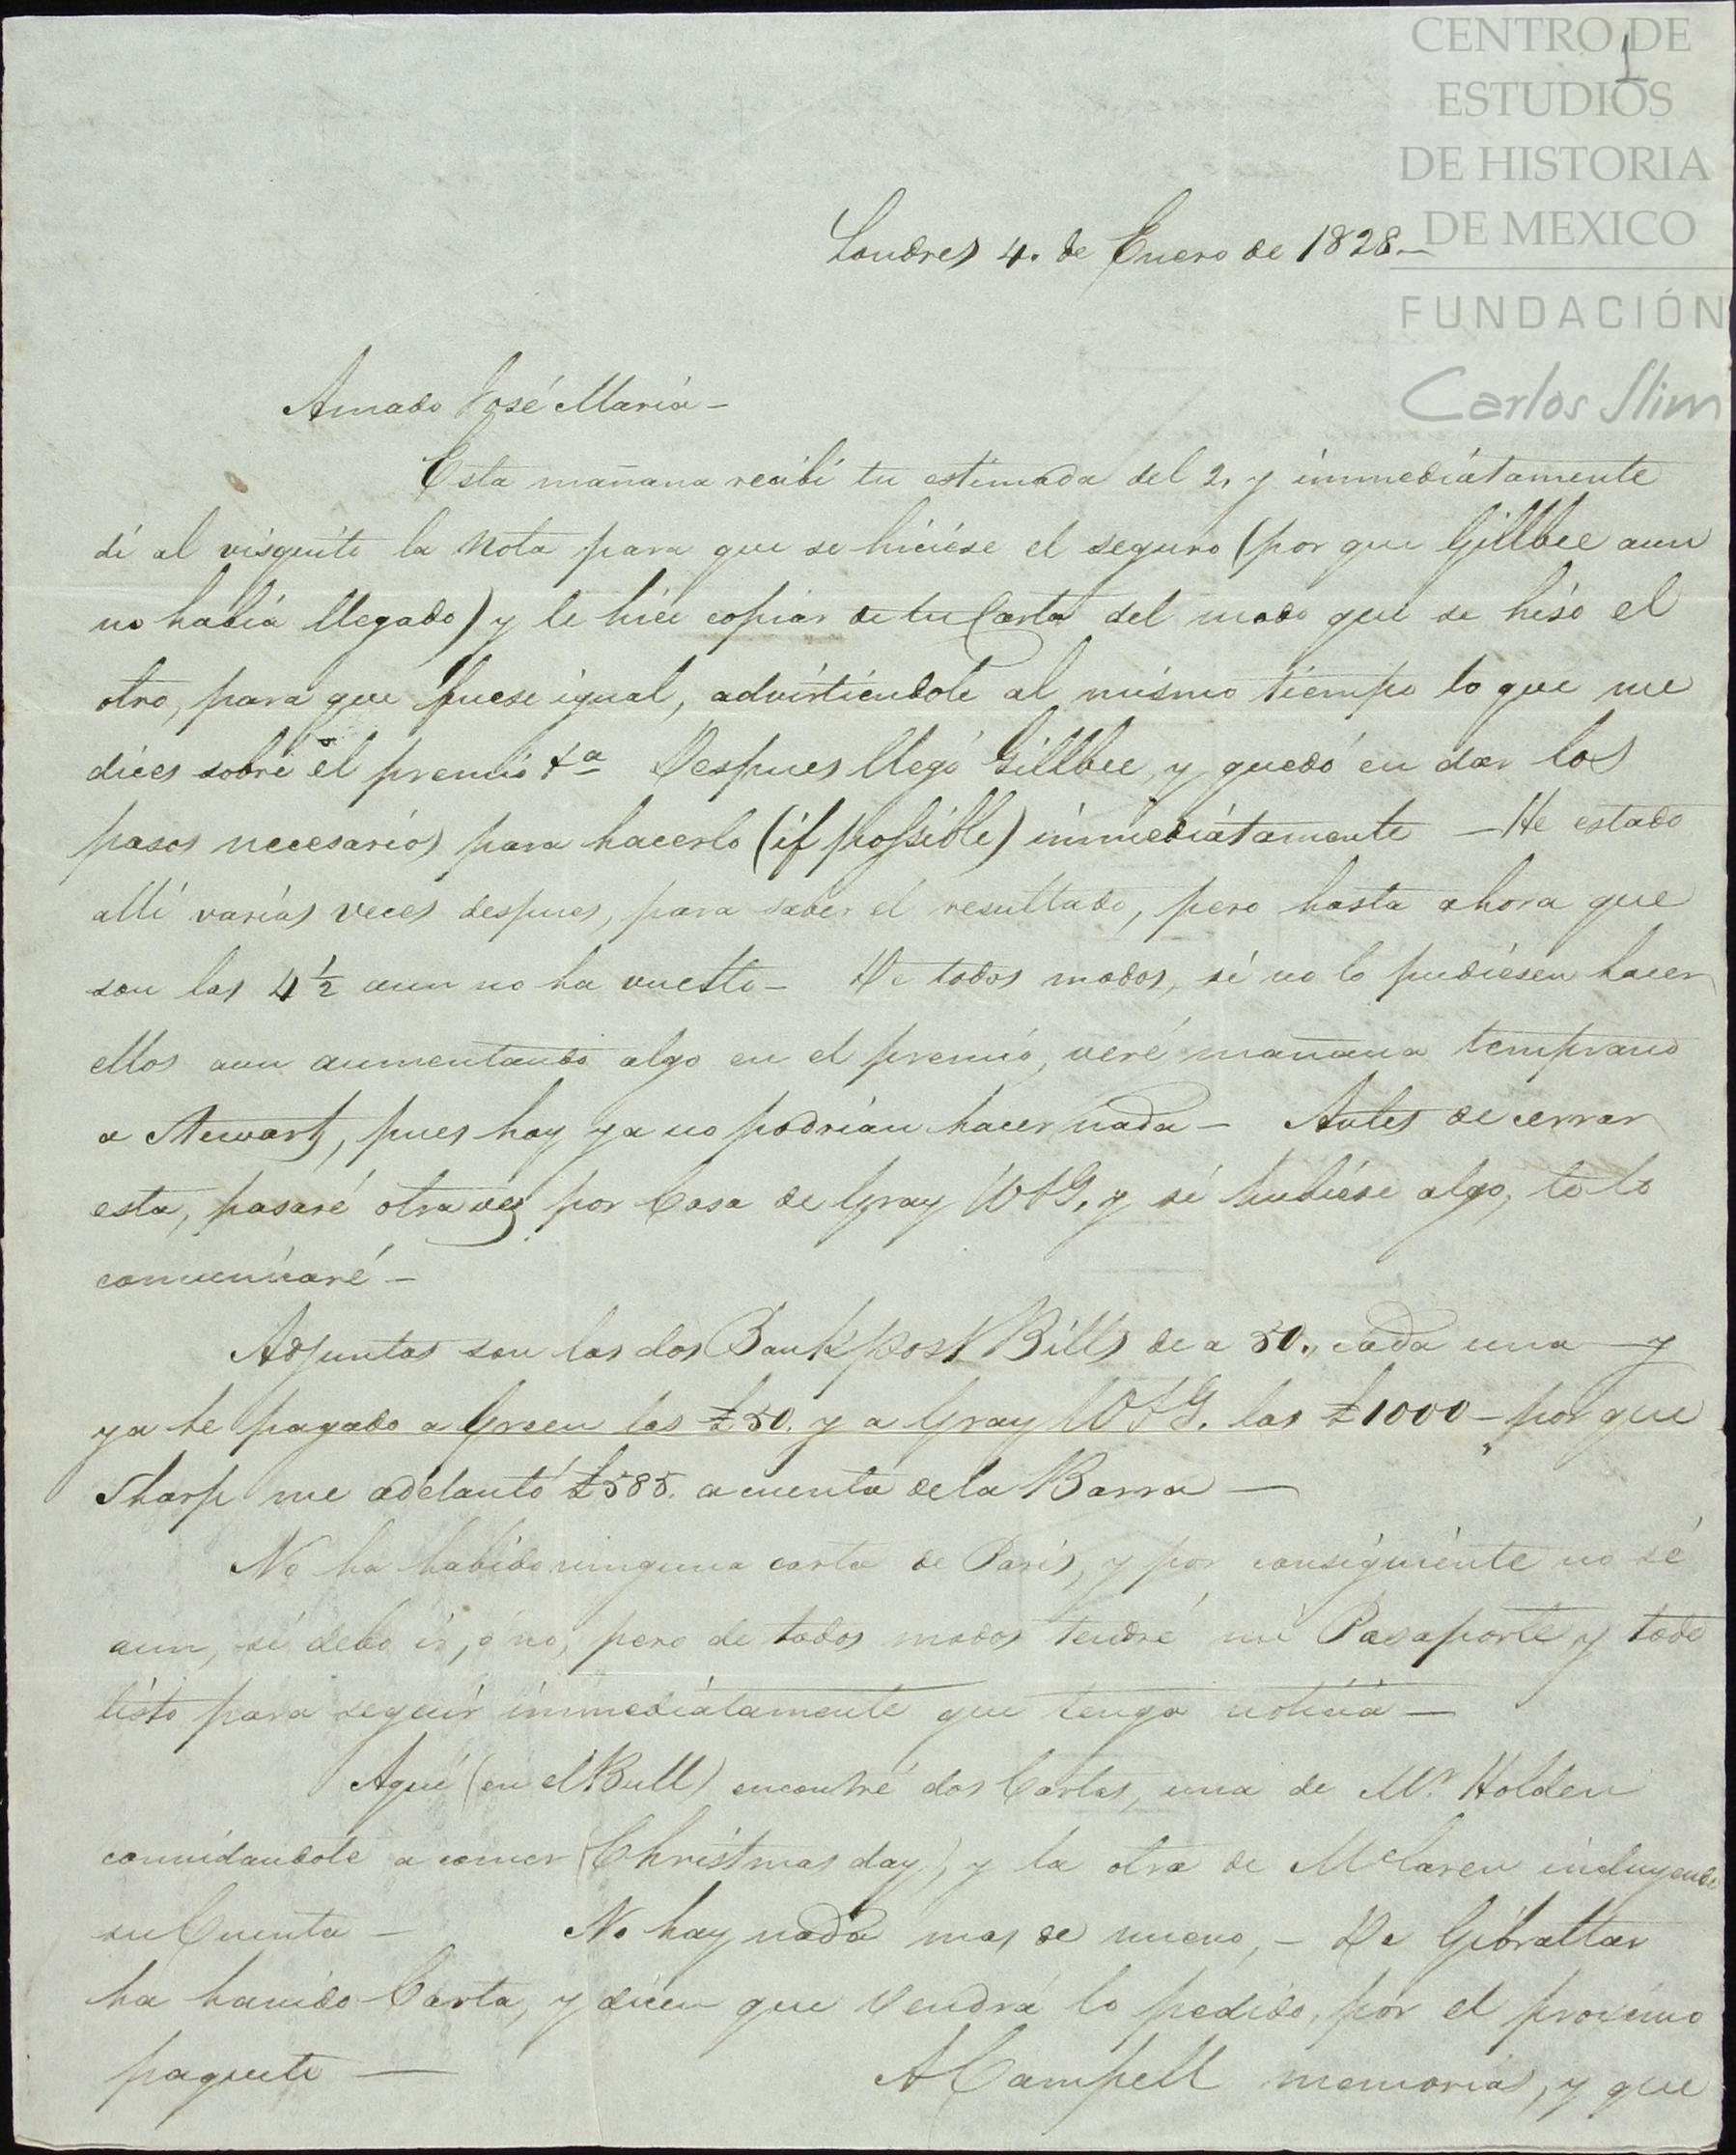 CENTRO DE
ESTUDIOS
DE HISTORIA
DE MEXICO
FUNDACIÓN
Carlos Slim
1
Londres 4. de Enero de 1828.—
Amado José María—
Esta mañana recibí tu estimada del 2, y immediátamente
dí al visquito la Nota para que se hiciése el seguro (por que Gillbee aun
no habia llegado) y le hice copiar de tu Carta del modo que se hiso el
otro, para que fuese igual, advirtiéndole al mismo tiempo lo que me
dices sobre el premio &a Despues llegó Gillbee, y quedó en dar los
pasos necesarios para hacerlo (if possible) immediátamente — He estado
allí varias veces despues, para saber el resultado, pero hasta ahora que
son las 4½ aun no ha vuelto — De todos modos, si no lo pudiésen hacer
ellos aun aumentando algo en el premio, veré mañana temprano
a Stewart, pues hoy ya no podrían hacer nada — Antes de cerrar
esta, pasaré otra vez por Casa de Gray W&G, y si hubiése algo, te lo
comunicaré —
Adjuntas son las dos Bank post Bills de a 50., cada una — y
ya he pagado a Green las £50. y a Gray W&G. las £1000 — por que
Sharp me adelantó £585. a cuenta de la Barra —
No ha habido ninguna carta de Paris, y por consiguiénte no sé
aun, si debo ir, ó no, pero de todos modos tendré mi Pasaporte y todo
listo para seguir immediátamente que tenga noticia —
Aqui (en el Bull) encontré dos Cartas, una de Mr. Holden
convidandote a comer (Christmas day), y la otra de McLaren incluyendo
su Cuenta — No hay nada mas de nuevo, — De Gibraltar
ha havido Carta, y dicen que vendrá lo pedido, por el proximo
paquete — A Campell memorias, y que